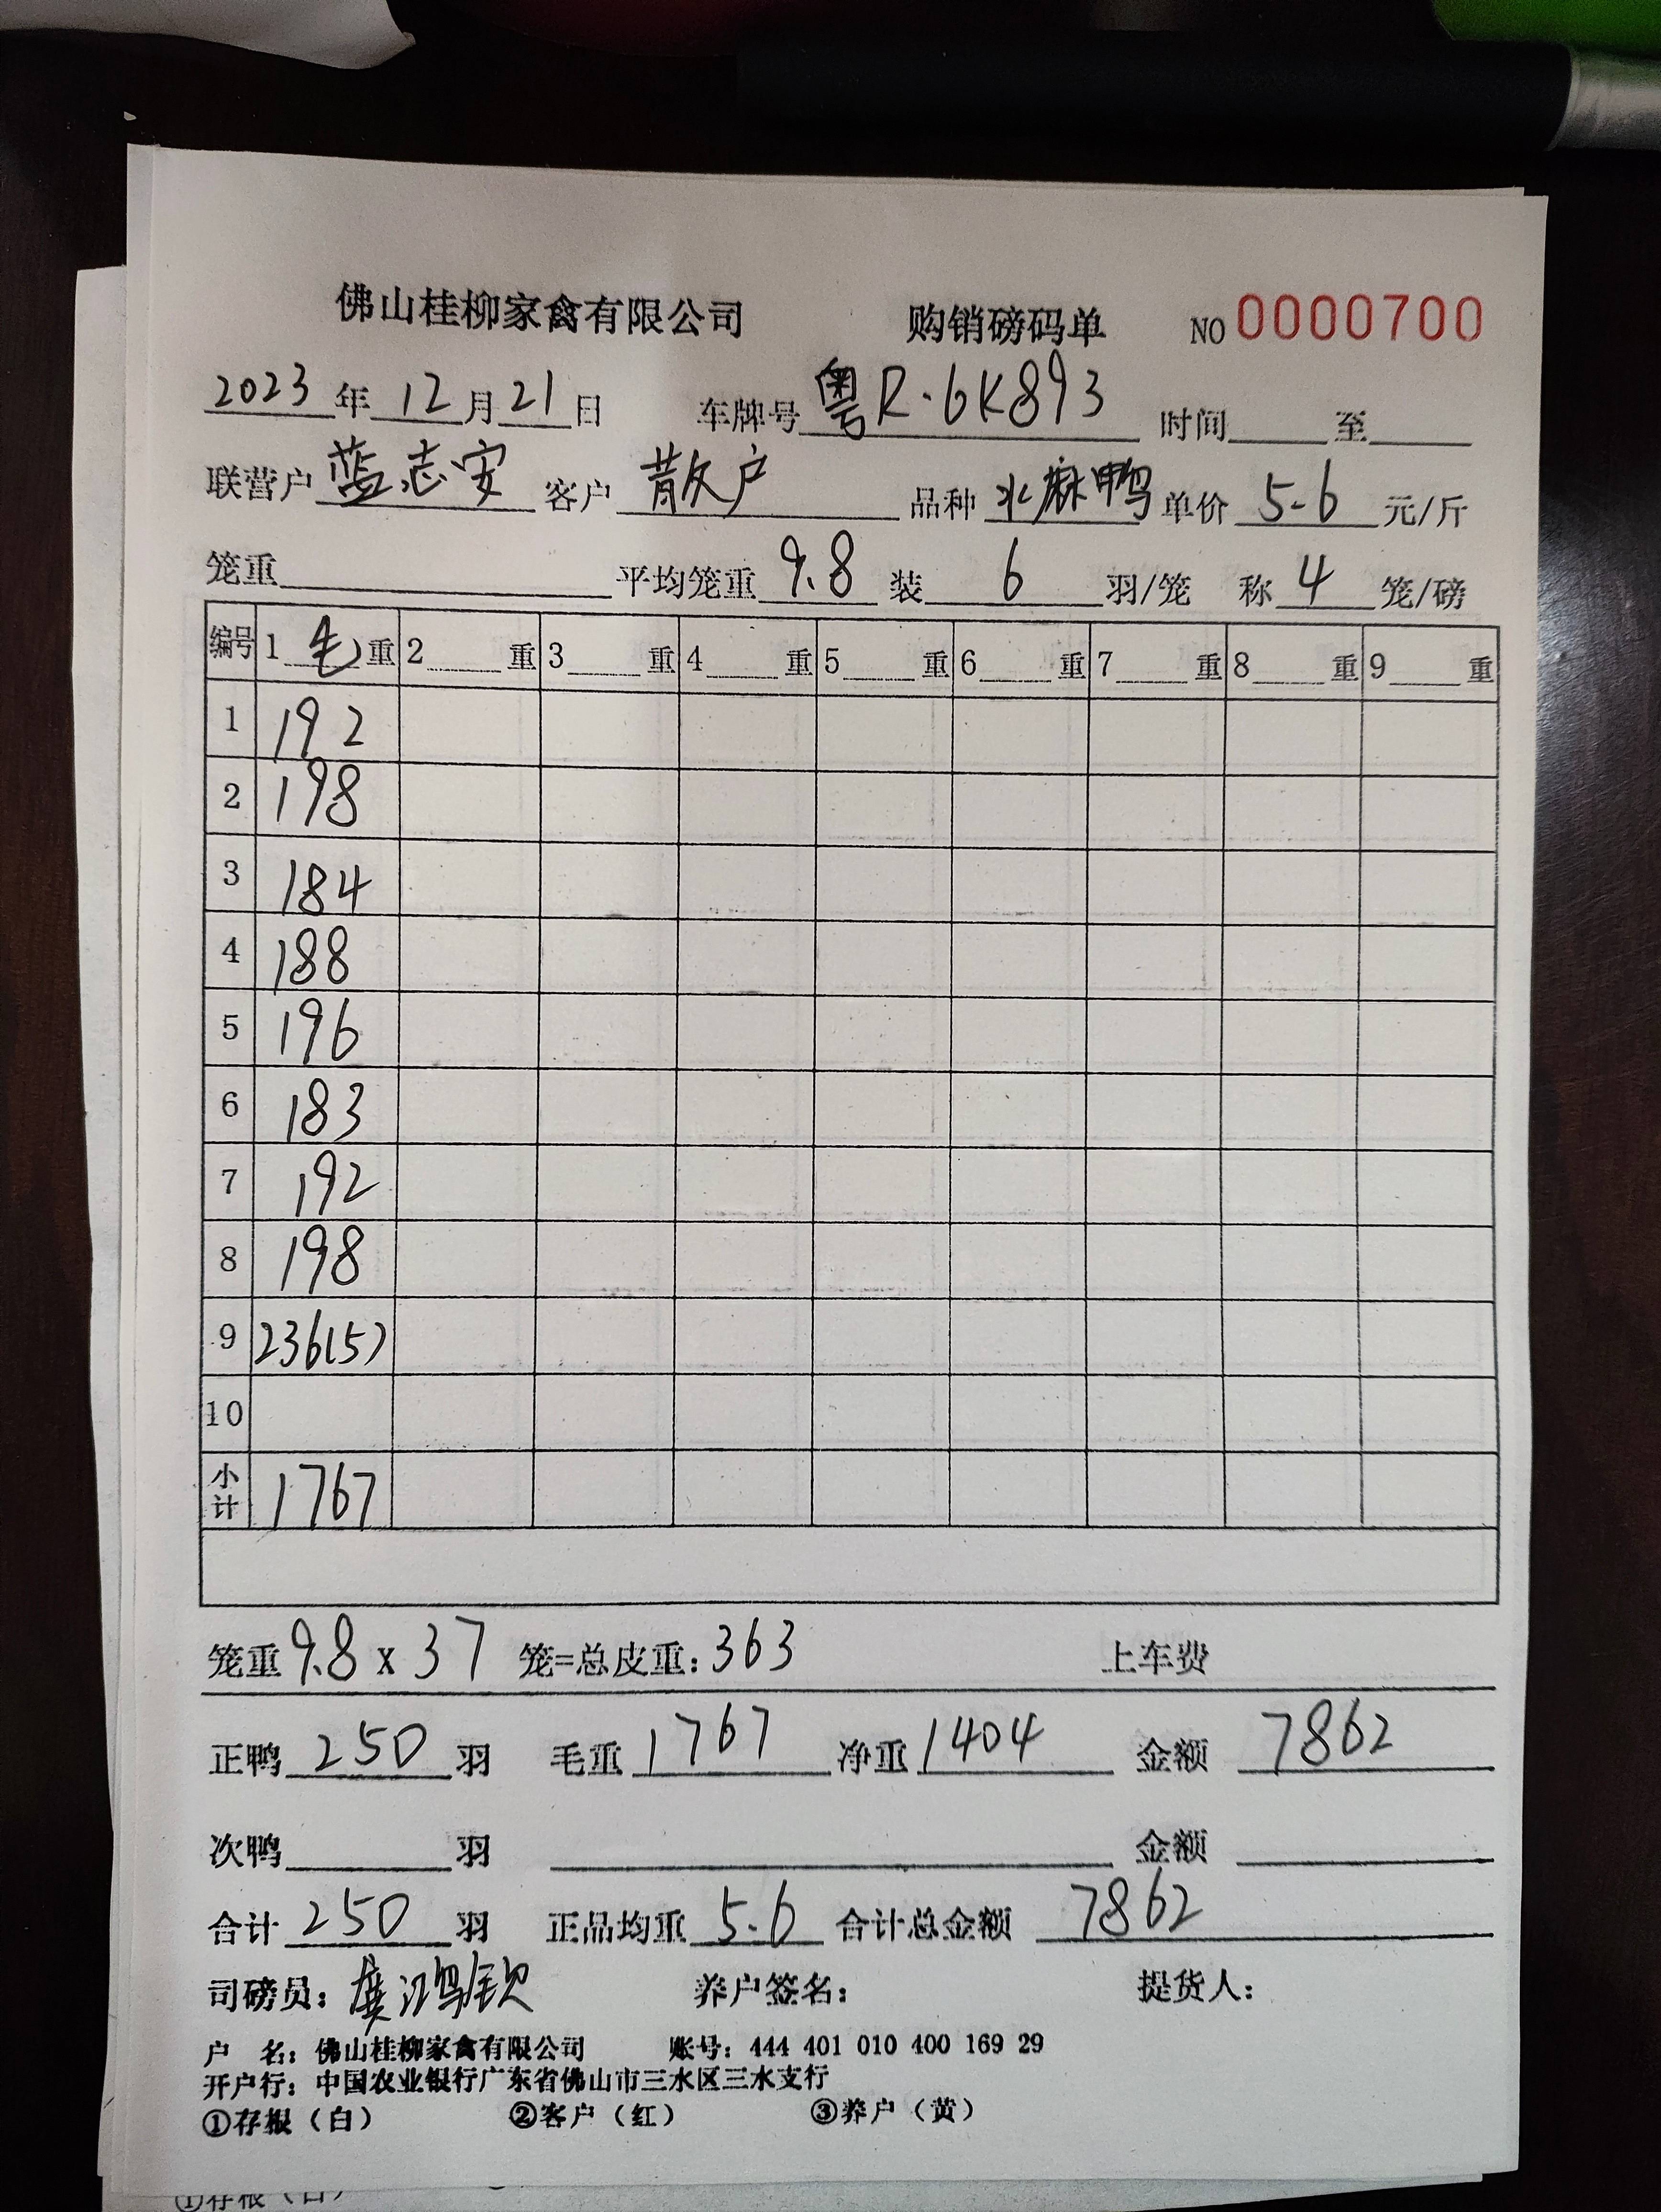 佛山桂柳家禽有限公司 购销磅码单 NO 0000700
2023年12月21日 车牌号粤R·6K893 时间 至
联营户 蓝志安 客户 散户 品种 水麻鸭 单价 5.6 元/斤
笼重 平均笼重 9.8 装 6 羽/笼 称 4 笼/磅
编号 1 毛 重 2 重 3 重 4 重 5 重 6 重 7 重 8 重 9 重
1 192
2 198
3 184
4 188
5 196
6 183
7 192
8 198
9 236(5)
10
小计 1767
笼重 9.8 x 37 笼=总皮重: 363 上车费
正鸭 250 羽 毛重 1767 净重 1404 金额 7862
次鸭 羽 金额
合计 250 羽 正品均重 5.6 合计总金额 7862
司磅员: 鸿钦 养户签名: 提货人:
户 名: 佛山桂柳家禽有限公司 账号: 444 401 010 400 169 29
开户行: 中国农业银行广东省佛山市三水区三水支行
①存根（白） ②客户（红） ③养户（黄）
①存根（白）